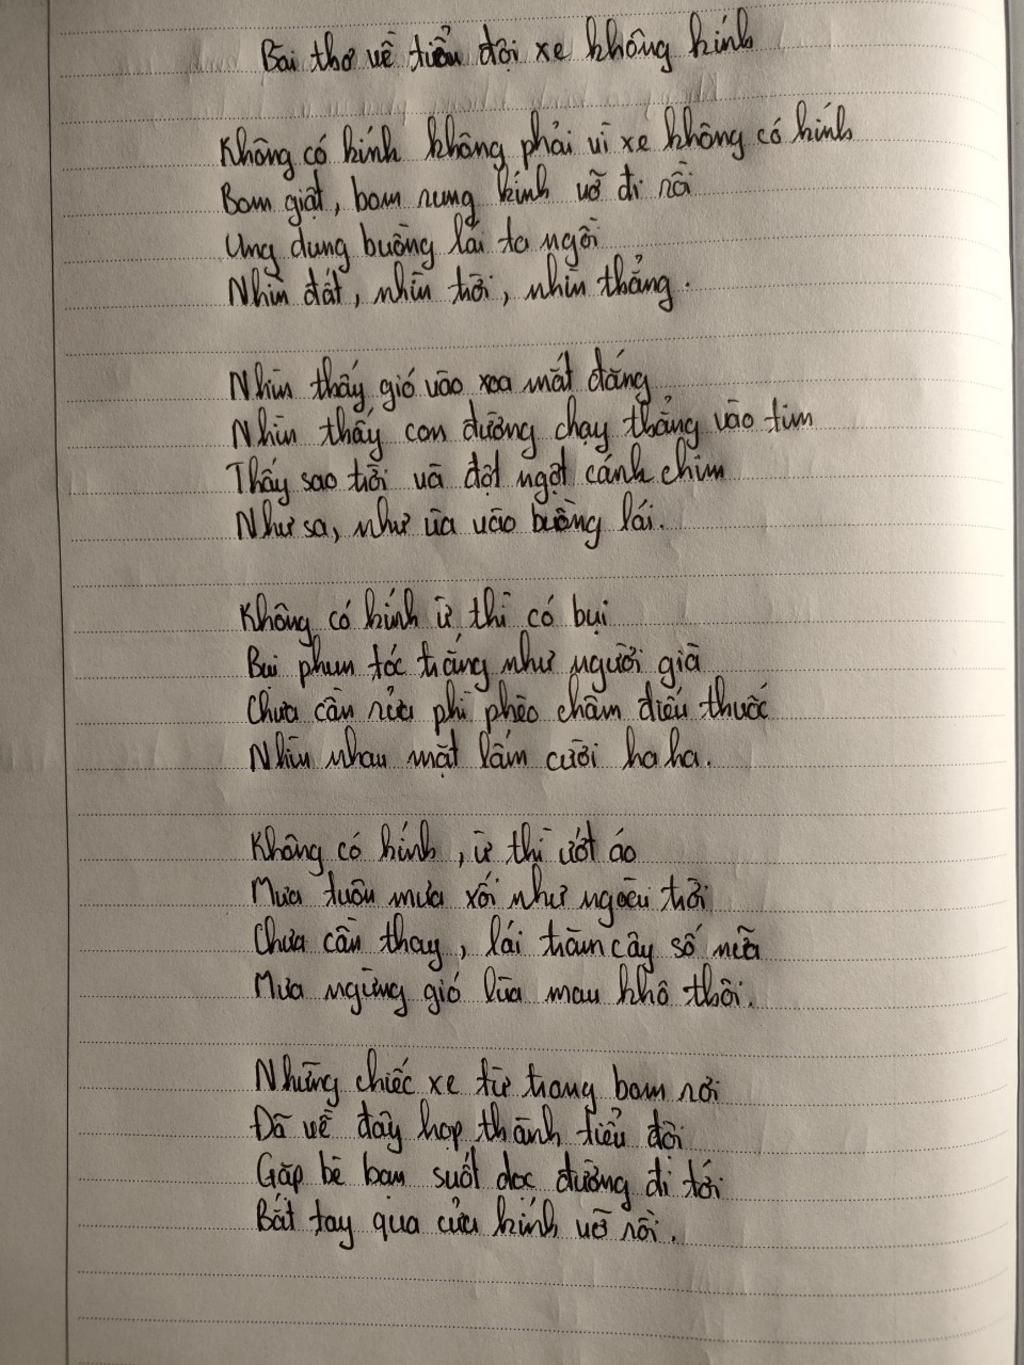 Bài thơ về tiểu đội xe không kính
Không có kính không phải vì xe không có kính
Bom giật, bom rung kính vỡ đi rồi
Ung dung buồng lái ta ngồi
Nhìn đất, nhìn trời, nhìn thẳng.
Nhìn thấy gió vào xoa mắt đắng
Nhìn thấy con đường chạy thẳng vào tim
Thấy sao trời và đột ngột cánh chim
Như sa, như ùa vào buồng lái.
Không có kính ừ thì có bụi
Bụi phun tóc trắng như người già
Chưa cần rửa phì phèo châm điếu thuốc
Nhìn nhau mặt lấm cười ha ha.
Không có kính, ừ thì ướt áo
Mưa tuôn mưa xối như ngoài trời
Chưa cần thay, lái trăm cây số nữa
Mưa ngừng gió lùa mau khô thôi.
Những chiếc xe từ trong bom rơi
Đã về đây họp thành tiểu đội
Gặp bè bạn suốt dọc đường đi tới
Bắt tay qua cửa kính vỡ rồi.